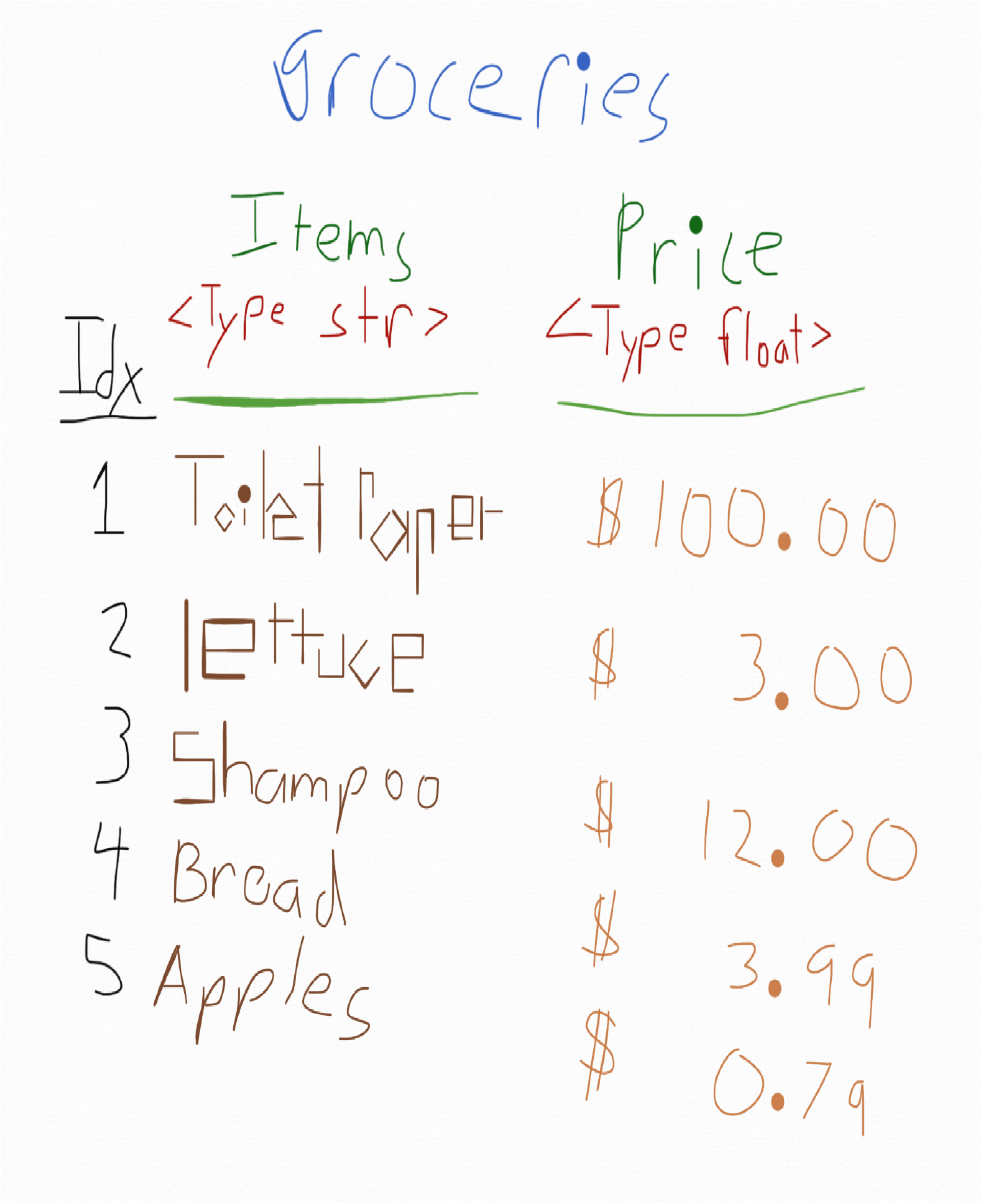 Groceries
Items Price
<Type str> <Type float>
Idx
1 Toilet Paper $100.00
2 lettuce $ 3.00
3 Shampoo $ 12.00
4 Bread $ 3.99
5 Apples $ 0.79